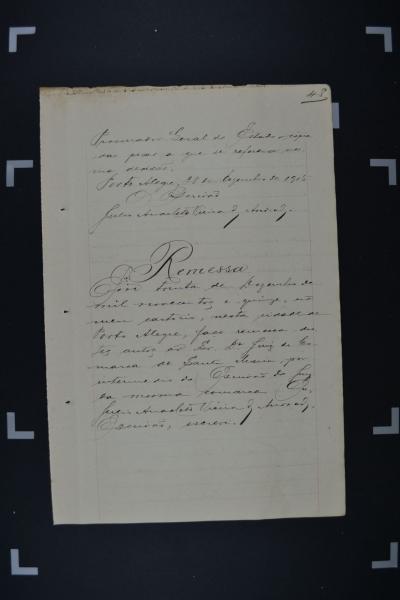 48
Procurador Geral do Estado e
das a que se refere a
ma decisão.
Porto Alegre, 28 de Dezembro de 1915
O Escrivão
Julio Anacleto Vieira de
Remessa
Aos trinta de Dezembro de
mil novecentos e quinze, em
meu cartorio, nesta cidade de
Porto Alegre, faço remessa des-
tes autos ao Snr. Dr. Juiz de Co-
marca de Santa Maria por
intermedio do Escrivão do Jury
da mesma comarca. Eu,
Julio Anacleto Vieira de
Escrivão, escrevi.